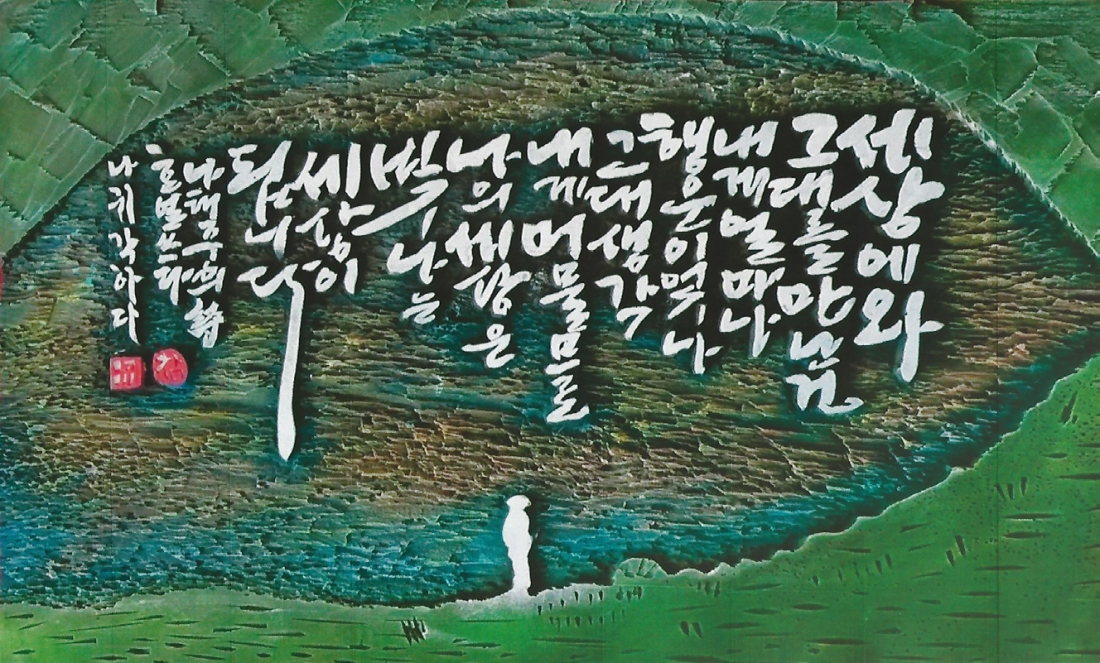 세상에와
그대를 만남
내게 얼마나
행운이었나
그대 생각
내게 머물므로
나의 세상은
빛나는
세상이
됩니다
나태주의 詩
각하다